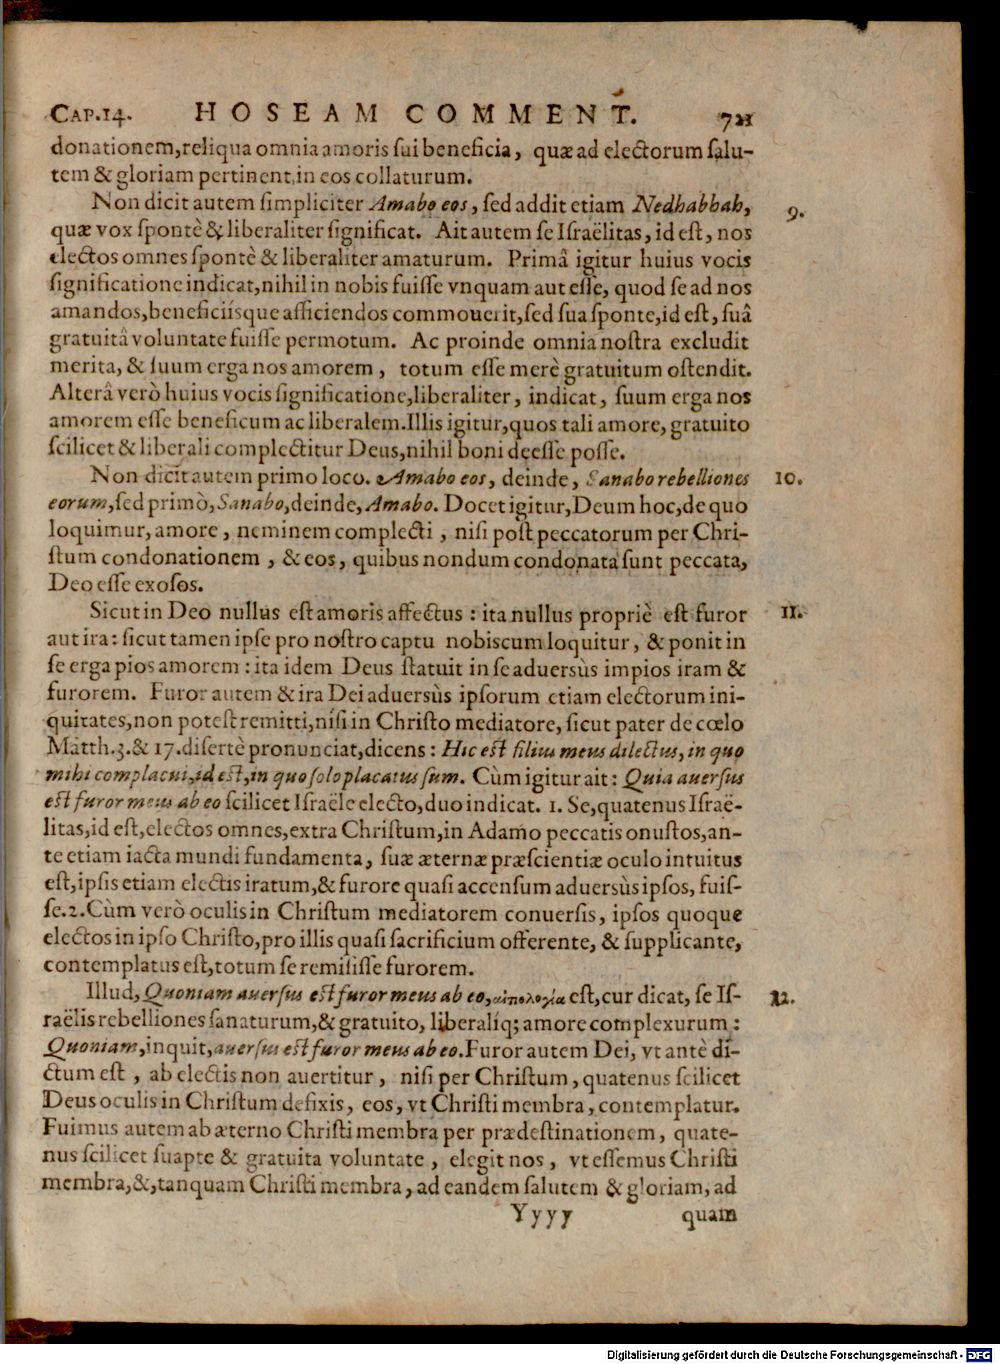 CAP.14. HOSEAM COMMENT. 721
donationem,reliqua omnia amoris sui beneficia, quæ ad electorum salu-
tem & gloriam pertinent,in eos collaturum.
Non dicit autem simpliciter Amabo eos, sed addit etiam Nedhabhah, 9.
quæ vox spontè & liberaliter significat. Ait autem se Israëlitas, id est, nos
electos omnes spontè & liberaliter amaturum. Primâ igitur huius vocis
significatione indicat,nihil in nobis fuisse vnquam aut esse, quod se ad nos
amandos,beneficiísque afficiendos commouerit,sed sua sponte,id est, suâ
gratuitâ voluntate fuisse permotum. Ac proinde omnia nostra excludit
merita, & suum erga nos amorem, totum esse merè gratuitum ostendit.
Alterâ verò huius vocis significatione,liberaliter, indicat, suum erga nos
amorem esse beneficum ac liberalem.Illis igitur,quos tali amore, gratuito
scilicet & liberali complectitur Deus,nihil boni deesse posse.
Non dicit autem primo loco. Amabo eos, deinde, Sanabo rebelliones 10.
eorum,sed primò,Sanabo,deinde,Amabo. Docet igitur,Deum hoc,de quo
loquimur, amore, neminem complecti, nisi post peccatorum per Chri-
stum condonationem, & eos, quibus nondum condonata sunt peccata,
Deo esse exosos.
Sicut in Deo nullus est amoris affectus : ita nullus propriè est furor 11.
aut ira : sicut tamen ipse pro nostro captu nobiscum loquitur, & ponit in
se erga pios amorem : ita idem Deus statuit in se aduersùs impios iram &
furorem. Furor autem & ira Dei aduersùs ipsorum etiam electorum ini-
quitates,non potest remitti,nisi in Christo mediatore, sicut pater de cœlo
Matth.3.& 17.disertè pronunciat,dicens : Hic est filius meus dilectus, in quo
mihi complacui,id est,in quo solo placatus sum. Cùm igitur ait : Quia auersus
est furor meus ab eo scilicet Israële electo, duo indicat. 1. Se,quatenus Israë-
litas,id est,electos omnes,extra Christum,in Adamo peccatis onustos,an-
te etiam iacta mundi fundamenta, suæ æternæ præscientiæ oculo intuitus
est,ipsis etiam electis iratum,& furore quasi accensum aduersùs ipsos, fuis-
se.2.Cùm verò oculis in Christum mediatorem conuersis, ipsos quoque
electos in ipso Christo,pro illis quasi sacrificium offerente, & supplicante,
contemplatus est,totum se remisisse furorem.
Illud, Quoniam auersus est furor meus ab eo, αἰτιολογία est,cur dicat, se Is- 12.
raëlis rebelliones sanaturum,& gratuito, liberalíq; amore complexurum :
Quoniam,inquit,auersus est furor meus ab eo.Furor autem Dei, vt antè di-
ctum est, ab electis non auertitur, nisi per Christum, quatenus scilicet
Deus oculis in Christum defixis, eos, vt Christi membra, contemplatur.
Fuimus autem ab æterno Christi membra per prædestinationem, quate-
nus scilicet suapte & gratuita voluntate, elegit nos, vt essemus Christi
membra,&,tanquam Christi membra, ad eandem salutem & gloriam, ad
Yyyy quam
Digitalisierung gefördert durch die Deutsche Forschungsgemeinschaft - DFG